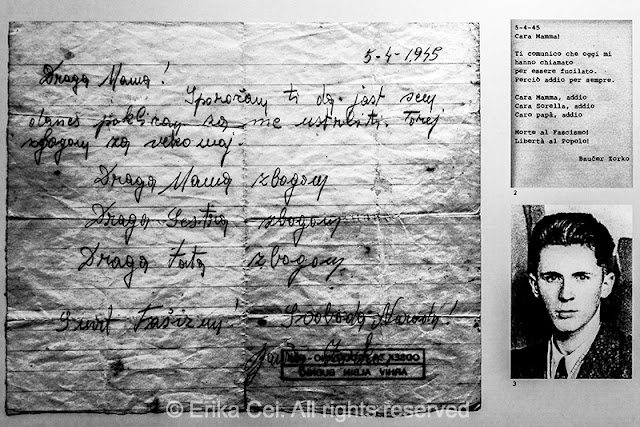 5-4-1945
Draga Mama!
Sporočam ti da jast sem
danes poklican za me ustrelit. Torej
zbogom za vekomaj.
Draga Mama zbogom
Draga Sestra zbogom
Draga Tata zbogom
Smrt Fašizmu! Svoboda Narodu!
5-4-45
Cara Mamma!
Ti comunico che oggi mi
hanno chiamato
per essere fucilato.
Perciò addio per sempre.
Cara Mamma, addio
Cara Sorella, addio
Caro papà, addio
Morte al Fascismo!
Libertà al Popolo!
Baučer Zorko
2
3
© Erika Cei. All rights reserved